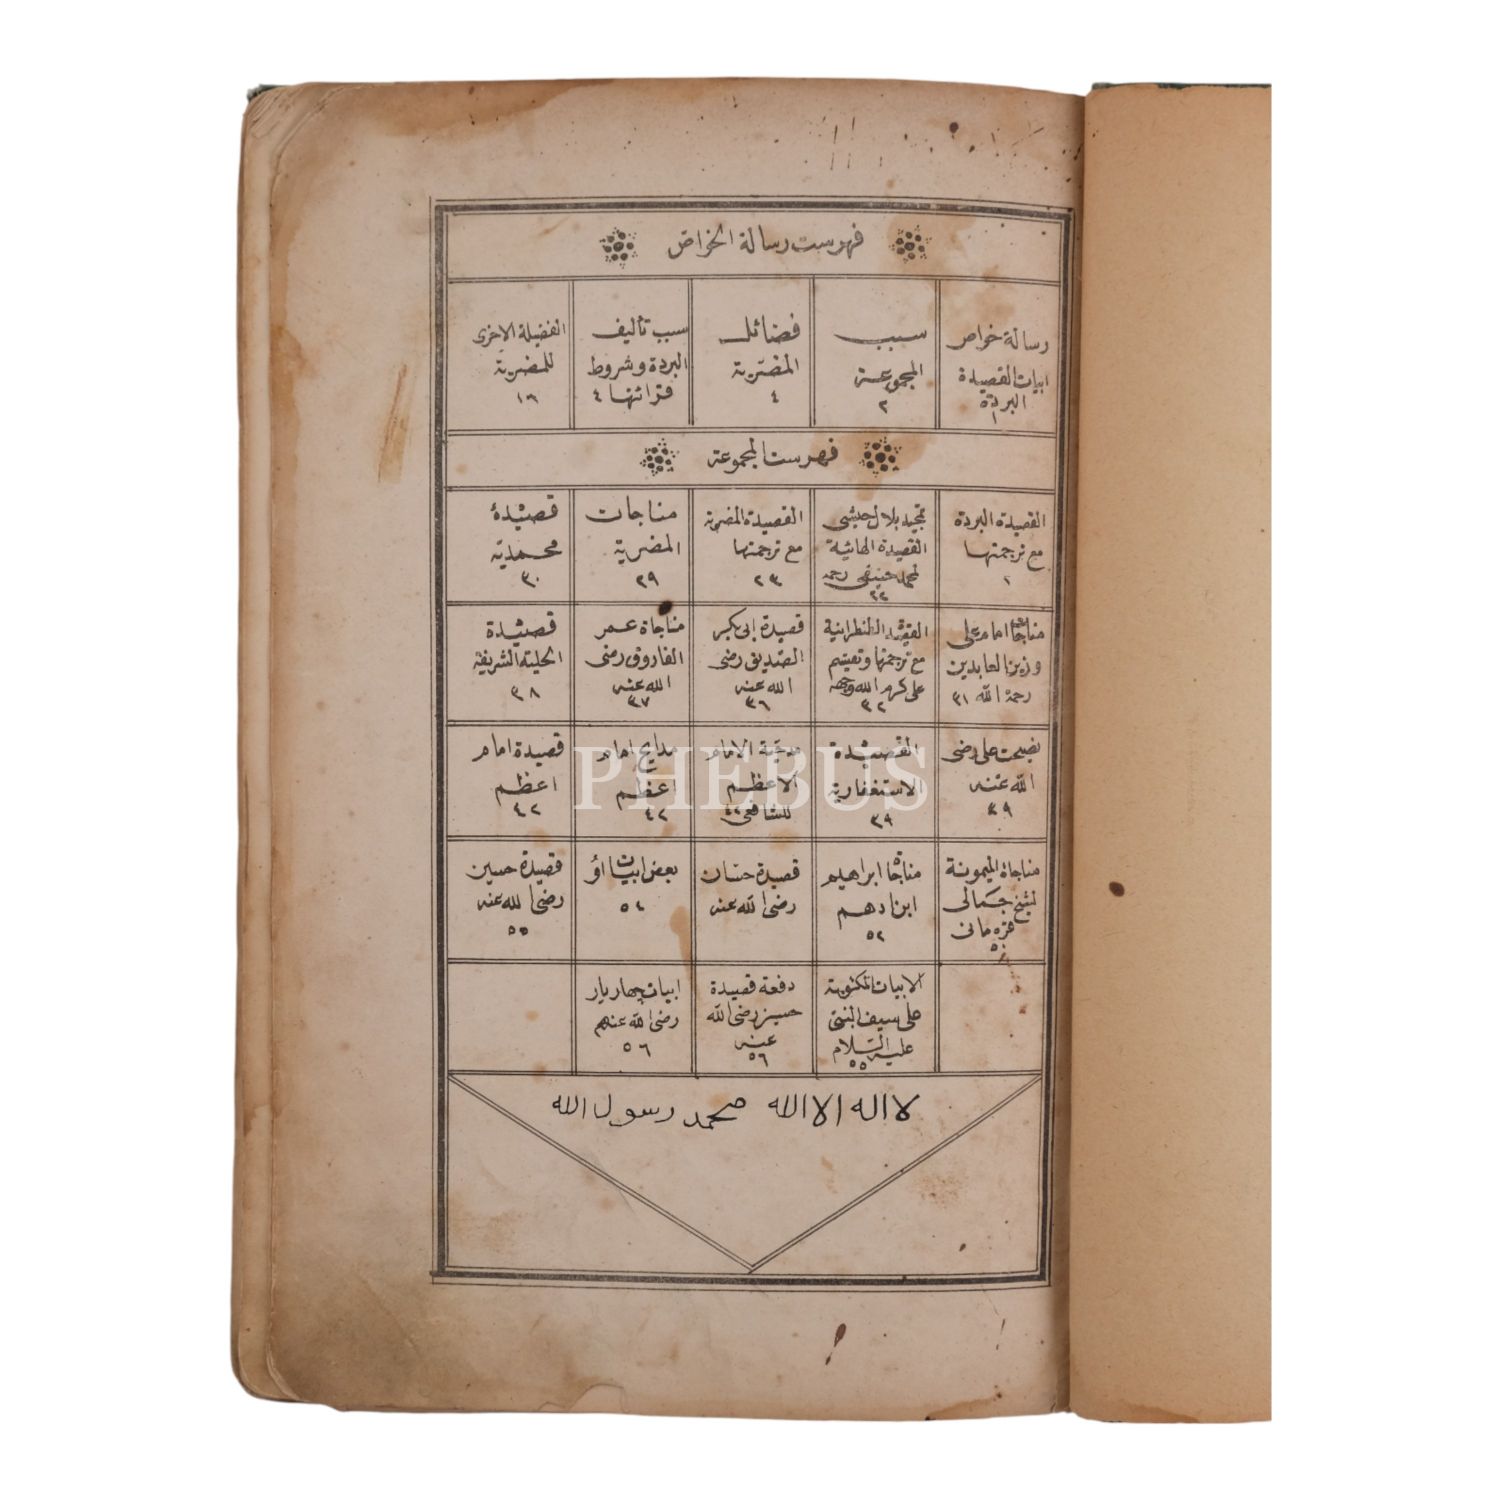 فهرست رسالة الخواص
رسالة خواص
ابيات القصيدة
البردة
١
سبب
المجموعة
٢
فضائل
المضرية
٤
سبب تأليف
البردة وشروط
قرائتها ٤
الفضيلة الاخرى
للمضرية
١٣
فهرست المجموعة
القصيدة البردة
مع ترجمتها
١
تمجيد بلال حبشى
القصيدة الهائية
لمحمد حنيفى رحمه
٢٢
القصيدة المضرية
مع ترجمتها
٢٣
مناجات
المضرية
٢٩
قصيدة
محمدية
٣٠
مناجات امام على
وزين العابدين
رحمة الله ٣١
القصيدة الطنطرانية
مع ترجمتها
على كرم الله وجهه
٣٢
قصيدة ابى بكر
الصديق رضى
الله عنه
٣٦
مناجاة عمر
الفاروق رضى
الله عنه
٣٧
قصيدة
الحلية الشريفة
٣٨
نصيحت على رضى
الله عنه
٣٩
القصيدة
الاستغفارية
٣٩
مدحية الامام
الاعظم
للشافعى ٤٢
مدايح امام
اعظم
٤٢
قصيدة امام
اعظم
٤٢
مناجاة الميمونة
لشيخ جمالى
قره مانى
٥٠
مناجاة ابراهيم
ابن ادهم
٥٢
قصيدة حسان
رضى الله عنه
بعض ابيات
٥٤
قصيدة حسين
رضى الله عنه
٥٥
الابيات المكتوبة
على سيف النبى
عليه السلام
٥٥
دفعة قصيدة
حسين رضى الله
عنه
٥٦
ابيات چهاريار
رضى الله عنهم
٥٦
لا اله الا الله محمد رسول الله
PHEBUS